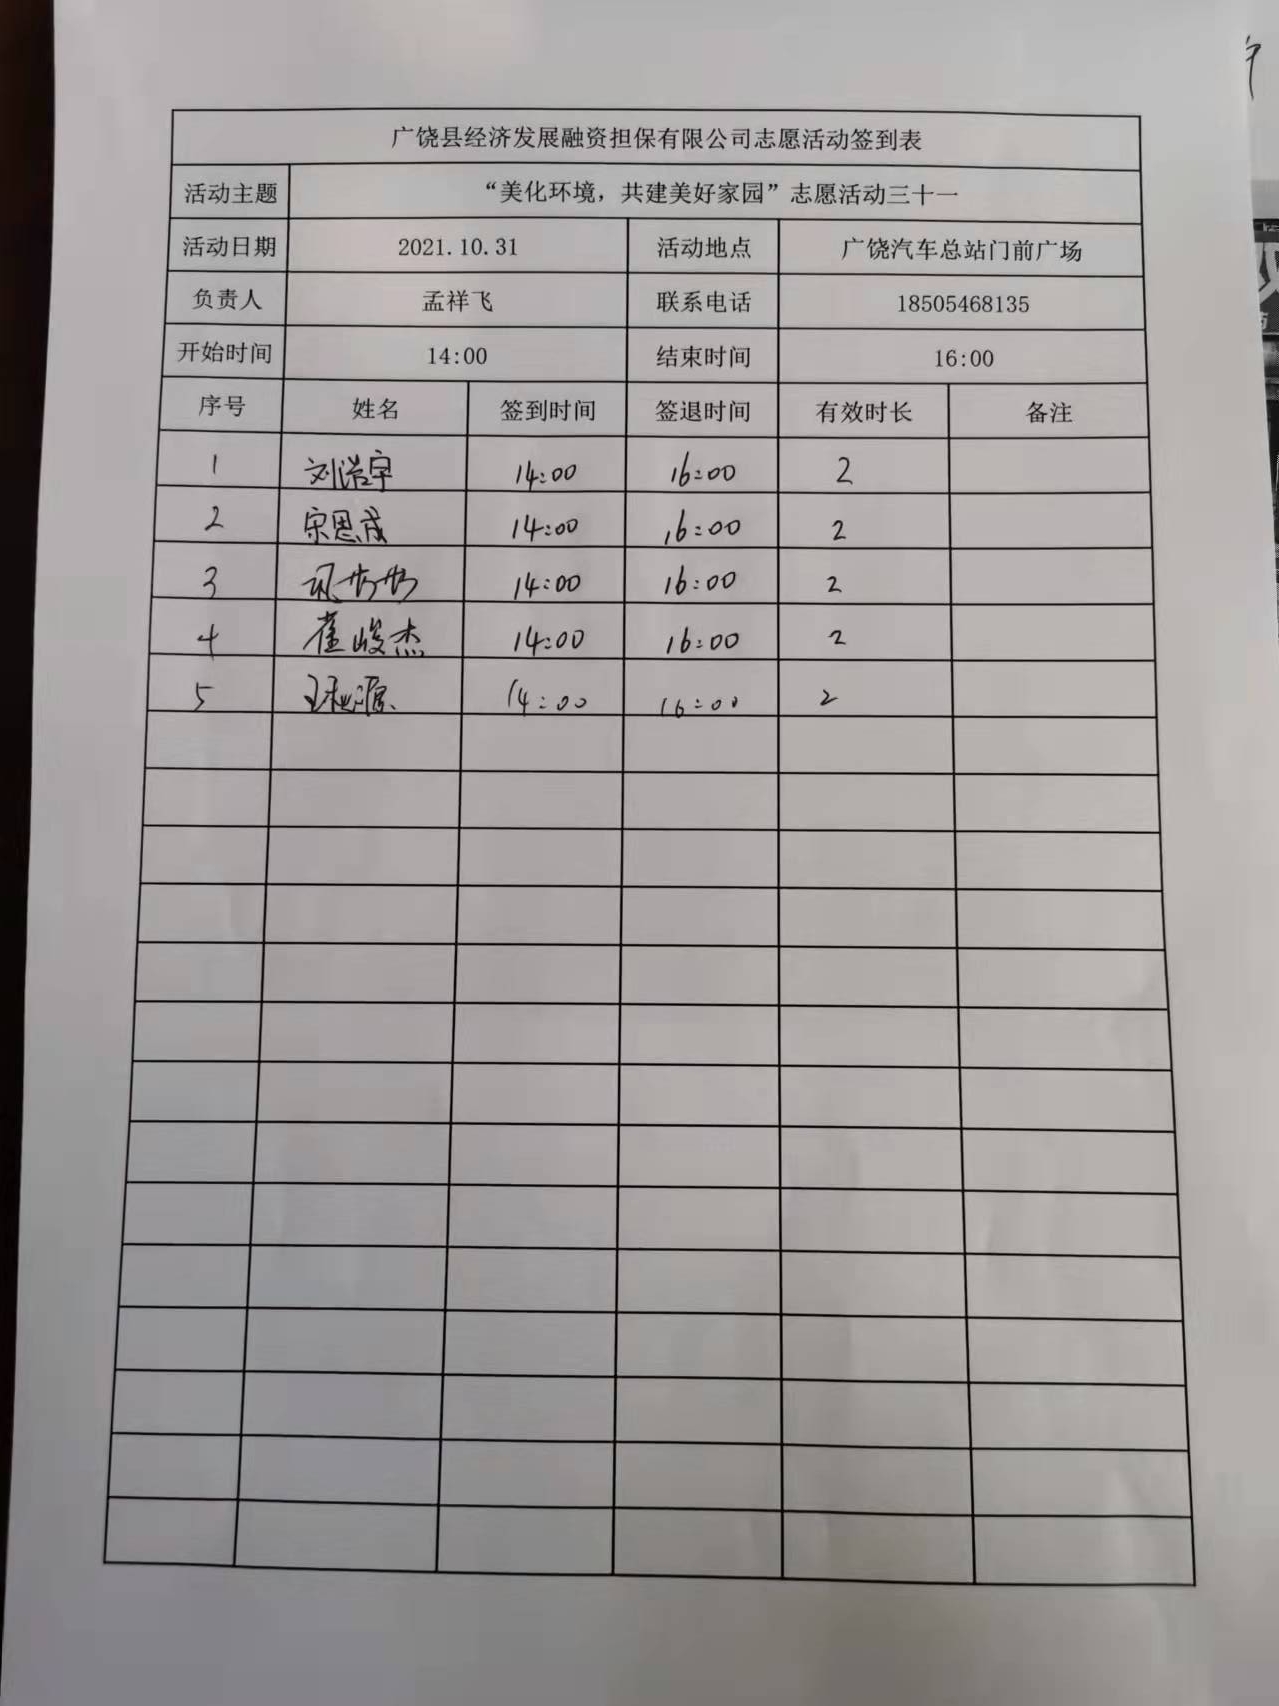 广饶县经济发展融资担保有限公司志愿活动签到表
活动主题 “美化环境，共建美好家园”志愿活动三十一
活动日期 2021.10.31 活动地点 广饶汽车总站门前广场
负责人 孟祥飞 联系电话 18505468135
开始时间 14:00 结束时间 16:00
序号 姓名 签到时间 签退时间 有效时长 备注
1 刘浩宇 14:00 16:00 2
2 宋思成 14:00 16:00 2
3 14:00 16:00 2
4 崔峻杰 14:00 16:00 2
5 14:00 16:00 2